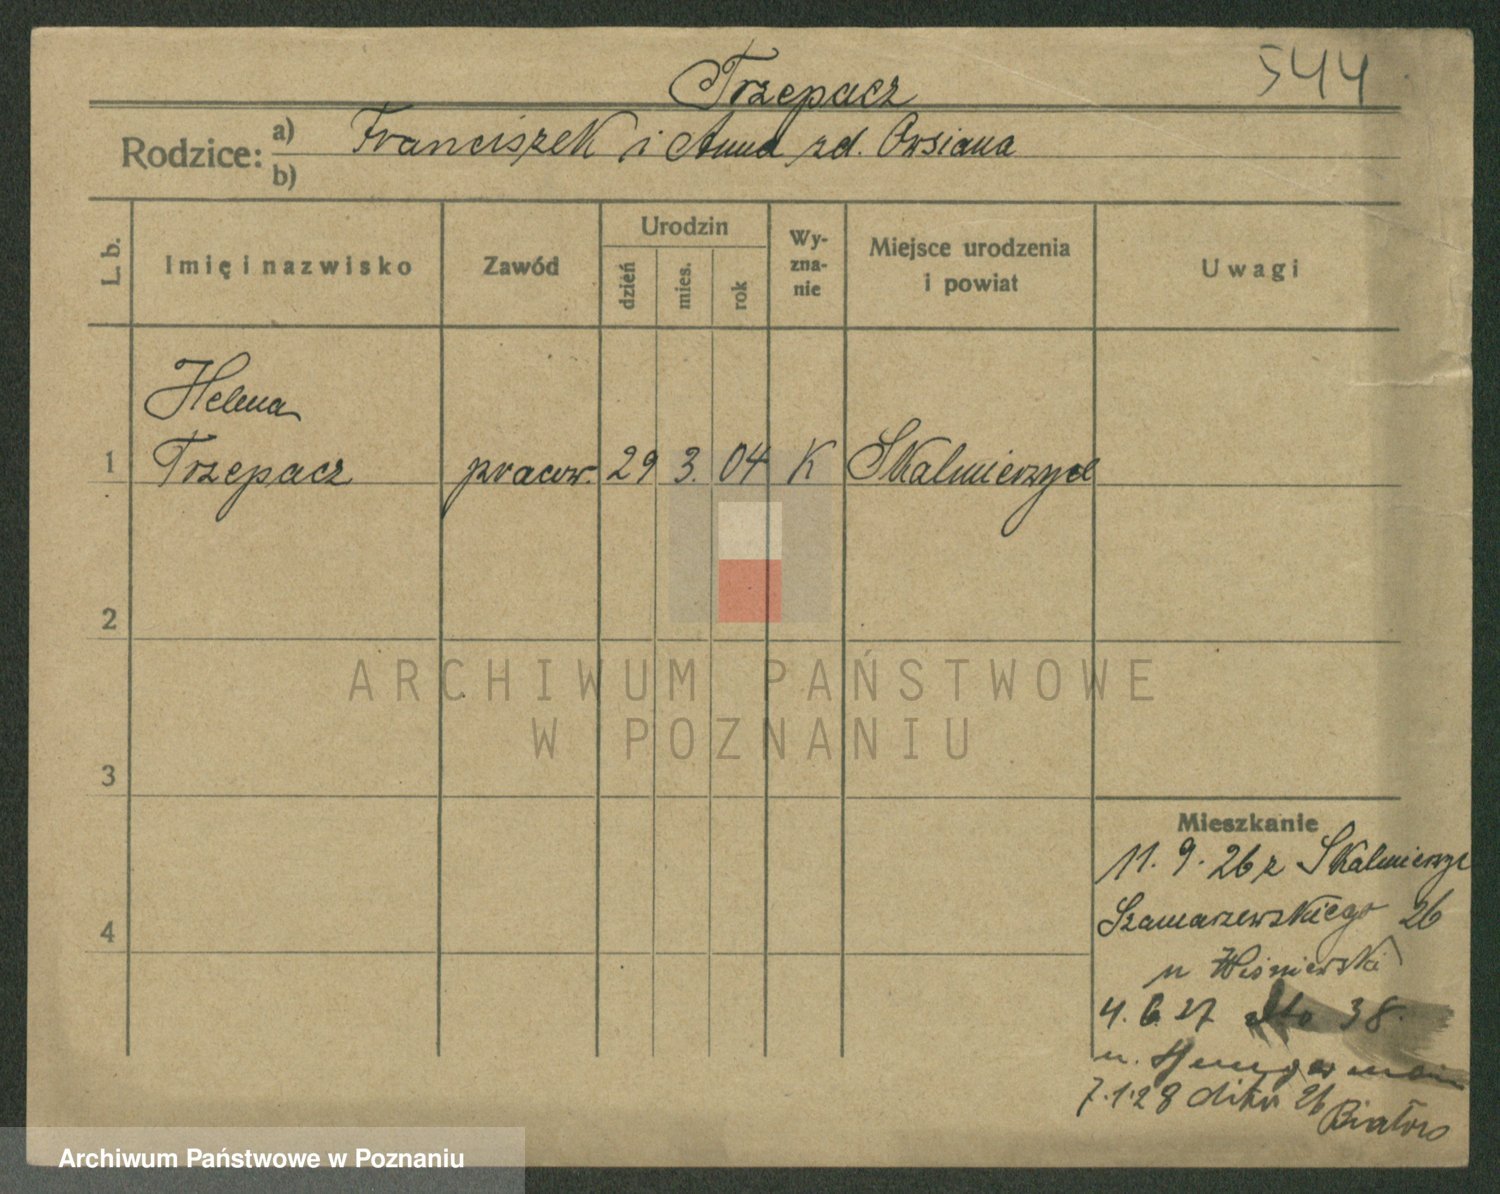 544
Trzepacz
Rodzice: a) Franciszek i Anna zd. Owsiana
b)
L. b. Imię i nazwisko Zawód Urodzin dzień mies. rok Wy-zna-nie Miejsce urodzenia i powiat Uwagi
Helena
1 Trzepacz pracow. 29 3. 04 K Skalmierzyce
2
ARCHIWUM PAŃSTWOWE
W POZNANIU
3
Mieszkanie
11. 9. 26 z Skalmierzyc
4 Szamarzewskiego 26
u Wiśniewski
4. 6. 27 dto 38.
u.
7.1.28 dito 26
Archiwum Państwowe w Poznaniu